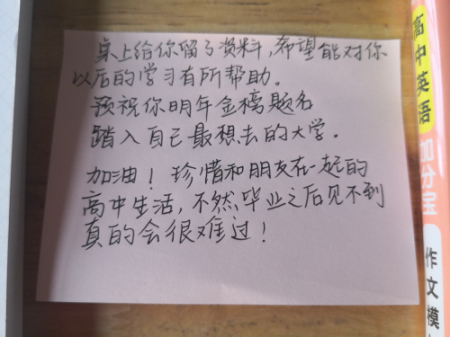 桌上给你留了资料，希望能对你
以后的学习有所帮助。
预祝你明年金榜题名
踏入自己最想去的大学。
加油！珍惜和朋友在一起的
高中生活，不然毕业之后见不到
真的会很难过！
高中英语
加分宝
作文模